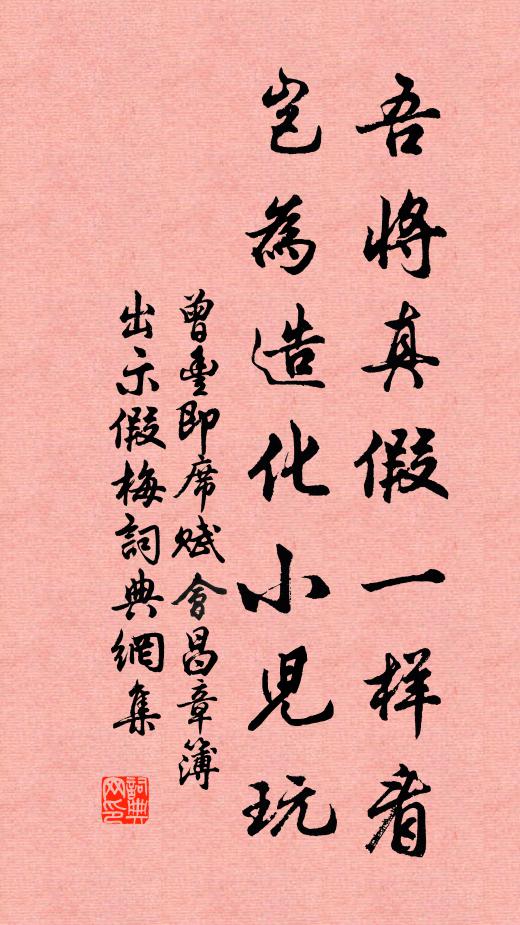 吾將真假一样看
豈為造化小児玩
曾豊即席賦會昌章簿
出示假梅詞典網集
詞典網印